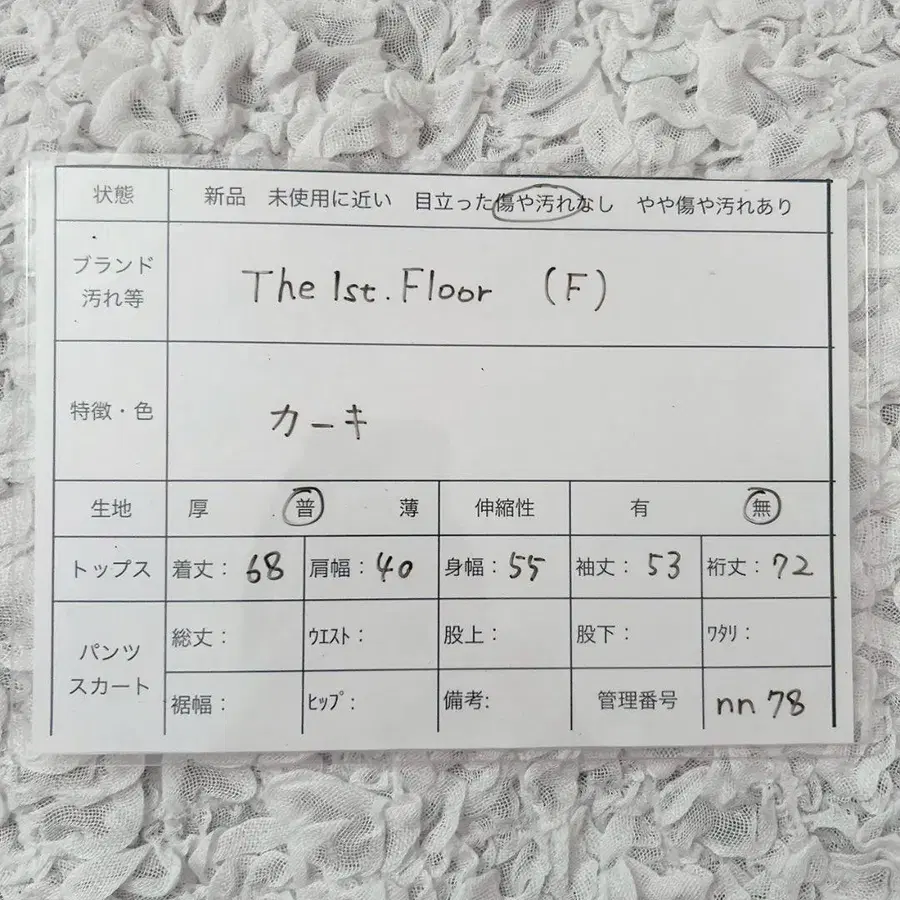 状態 新品 未使用に近い 目立った傷や汚れなし やや傷や汚れあり
ブランド
汚れ等
The 1st. Floor (F)
特徴・色 カーキ
生地 厚 普 薄 伸縮性 有 無
トップス 着丈: 68 肩幅: 40 身幅: 55 袖丈: 53 裄丈: 72
パンツ
スカート
総丈: ｳｴｽﾄ: 股上: 股下: ﾜﾀﾘ:
裾幅: ﾋｯﾌﾟ: 備考: 管理番号 nn 78